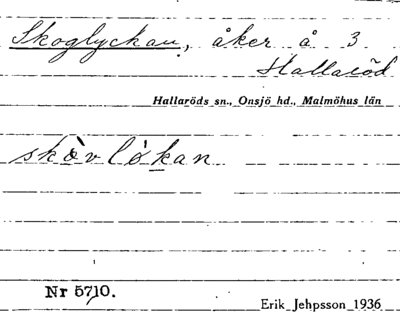 Skoglyckan, åker å 3
Hallaröd
Hallaröds sn., Onsjö hd., Malmöhus län
skòvlỏkan
Nr 5710.
Erik Jehpsson 1936